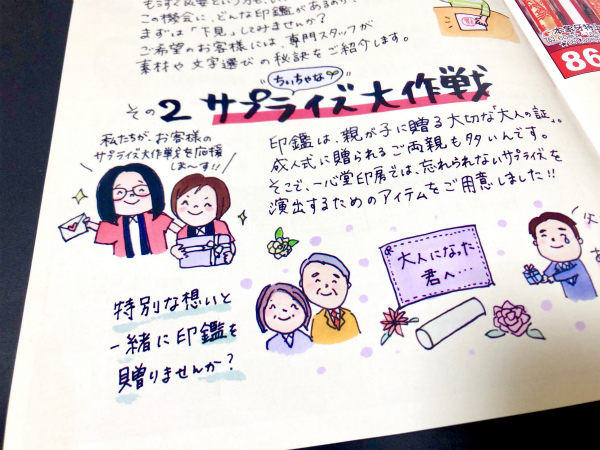 この機会に、どんな印鑑があるのか?
まずは「下見」してみませんか?
ご希望のお客様には、専門スタッフが
素材や文字選びの秘訣をご紹介します。
ちぃちゃな
その2 サプライズ大作戦
私たちが、お客様の
サプライズ大作戦を応援
しま〜す!!
印鑑は、親が子に贈る大切な「大人の証」。
成人式に贈られるご両親も多いんです。
そこで、一心堂印房では、忘れられないサプライズを
演出するためのアイテムをご用意しました!!
大人になった
君へ…
特別な想いと
一緒に印鑑を
贈りませんか?
86